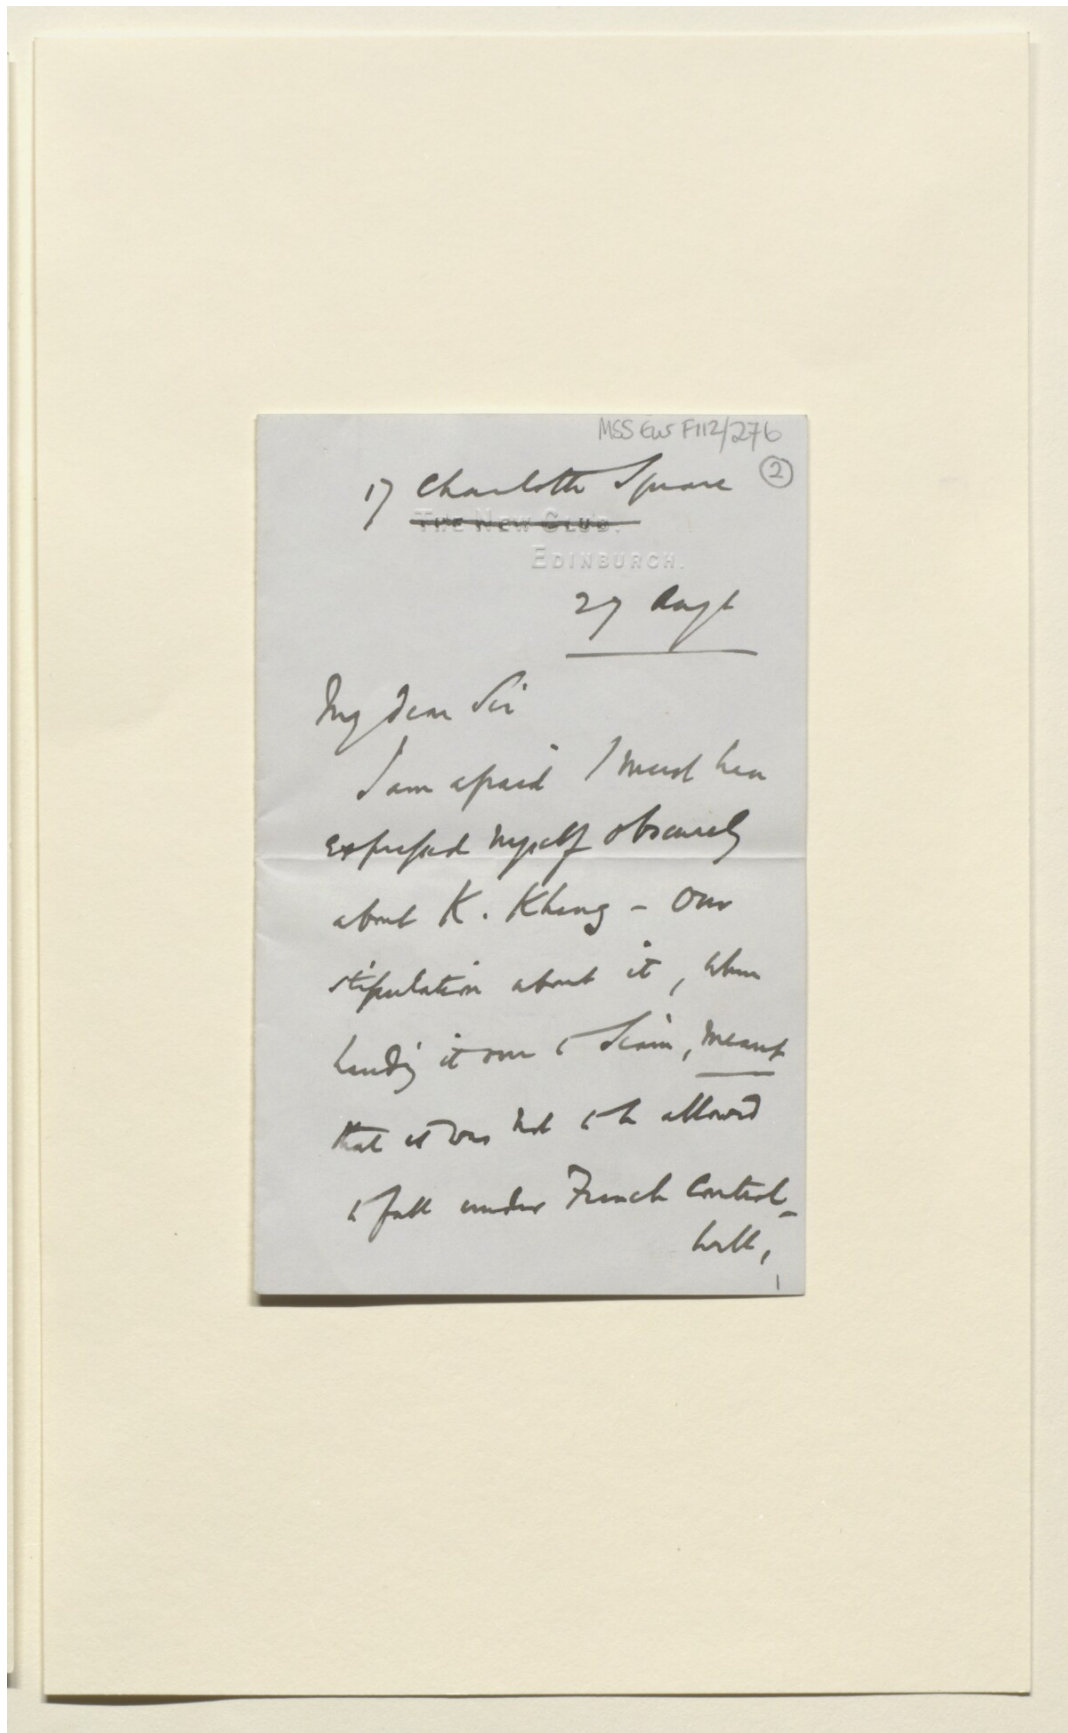 MSS Eur F112/276
2
17 Charlotte Square
THE NEW CLUB.
EDINBURGH.
27 Augt
My dear Sir
I am afraid I must have
expressed myself obscurely
about K. Kheng - Our
stipulation about it, when
handing it over to Siam, meant
that it was not to be allowed
to fall under French control -
Well,
1